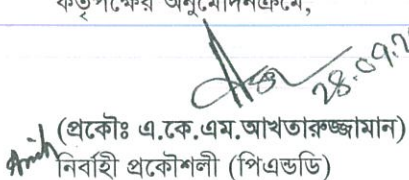 কর্তৃপক্ষের অনুমোদনক্রমে,
(প্রকৌঃ এ.কে.এম.আখতারুজ্জামান)
নির্বাহী প্রকৌশলী (পিএন্ডডি)